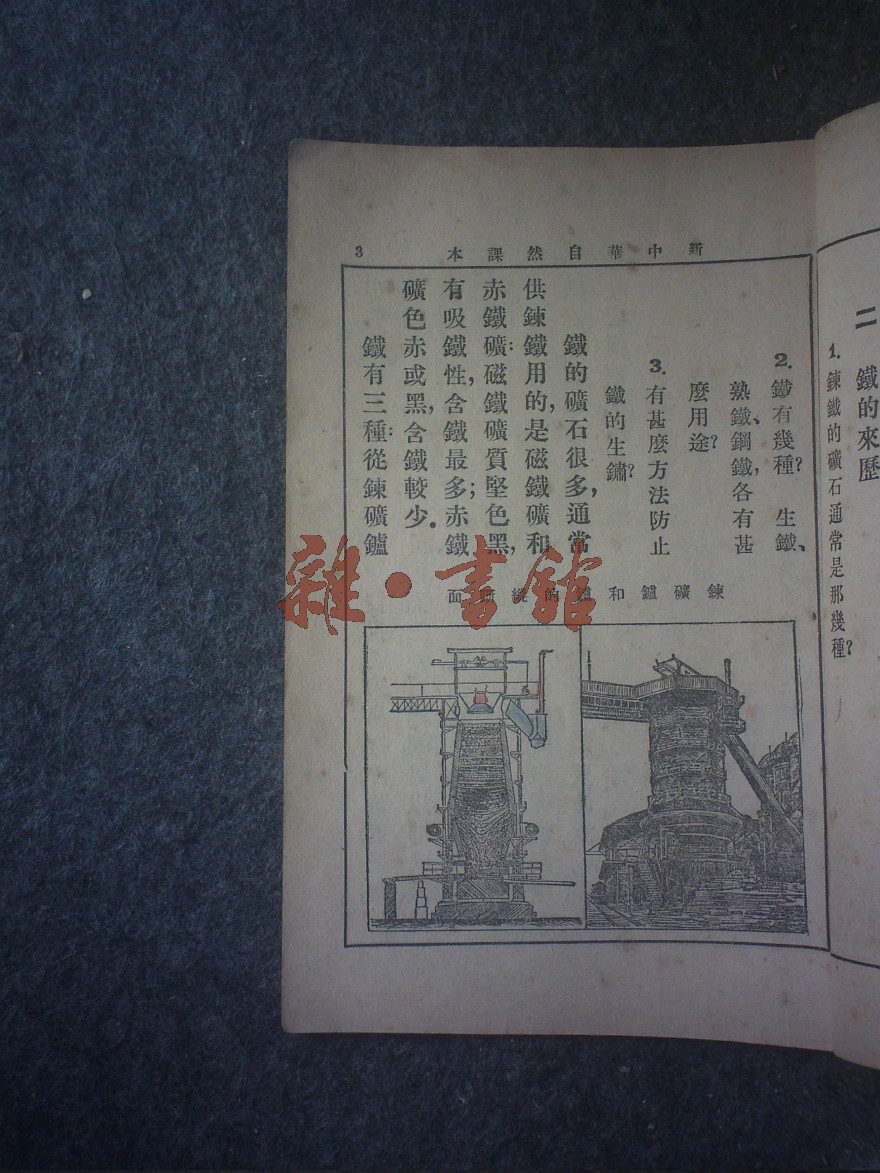 二　鐵的來歷
1. 鍊鐵的礦石通常是那幾種？
新中華自然課本　3
2. 鐵有幾種？生鐵、
熟鐵、鋼鐵，各有甚
麼用途？
3. 有甚麼方法防止
鐵的生鏽？
鐵的礦石很多，通常
供鍊鐵用的，是磁鐵礦和
赤鐵礦：磁鐵礦質堅色黑，
有吸鐵性，含鐵最多；赤鐵
礦色赤或黑，含鐵較少。
鐵有三種：從鍊礦鑪
鍊礦鑪和鑪的縱面
雜·書館